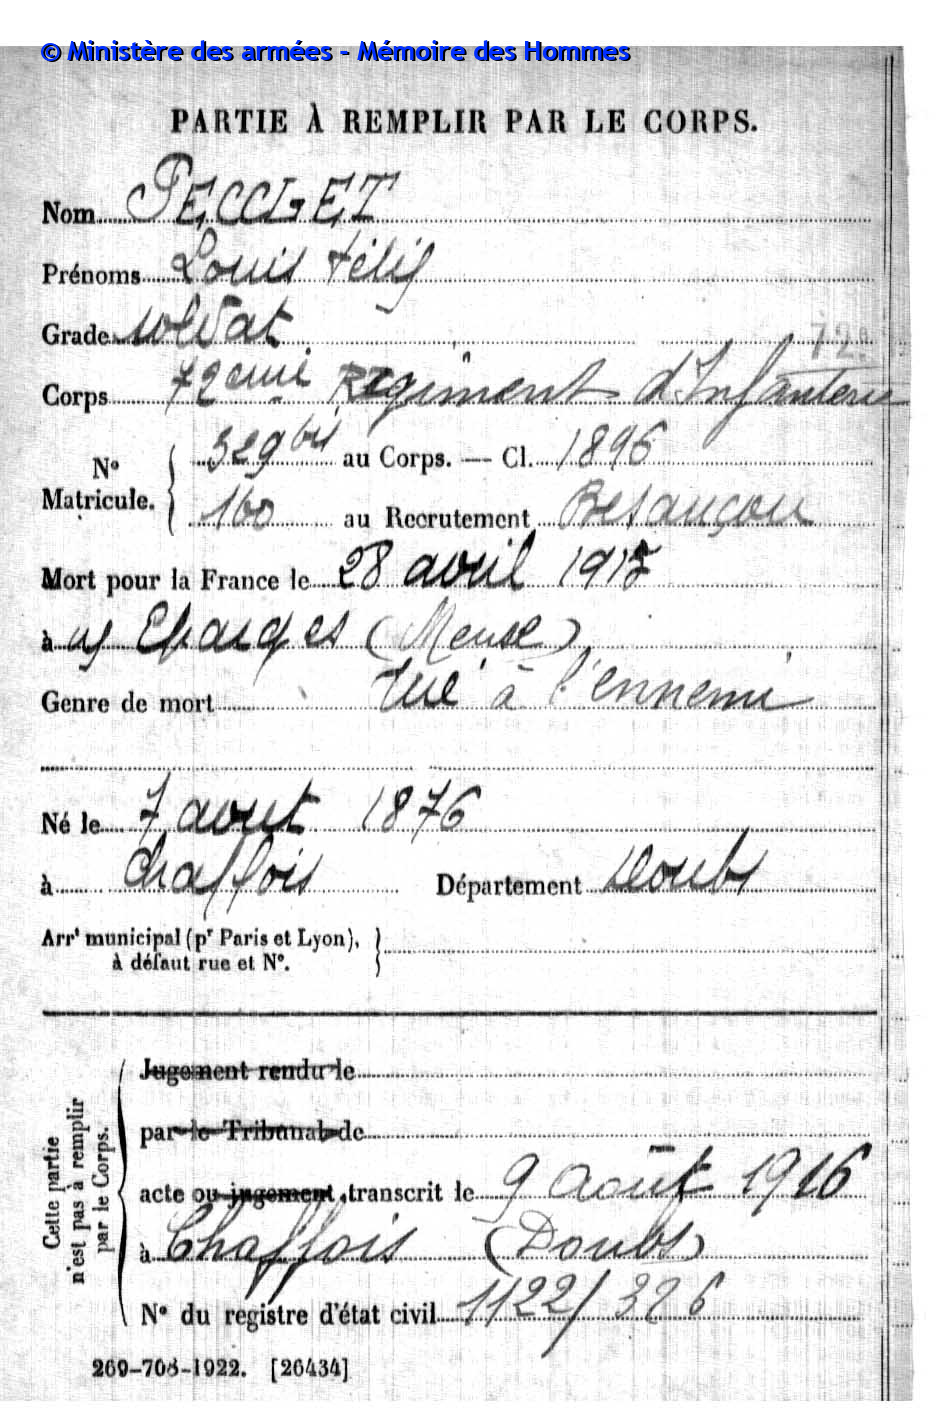 © Ministère des armées - Mémoire des Hommes
PARTIE À REMPLIR PAR LE CORPS.
Nom PECCLET
Prénoms Louis Félix
Grade soldat
72e
Corps 72eme Régiment d'Infanterie
No Matricule. 329 bis au Corps. — Cl. 1896
160 au Recrutement Besançon
Mort pour la France le 28 avril 1915
à Les Eparges (Meuse)
Genre de mort tué à l'ennemi
Né le 7 aout 1876
à Chaffois Département Doubs
Arrt municipal (pr Paris et Lyon),
à défaut rue et No.
Cette partie
n'est pas à remplir
par le Corps.
Jugement rendu le
par le Tribunal de
acte ou jugement transcrit le 9 août 1916
à Chaffois (Doubs)
No du registre d'état civil 1122/326
269-708-1922. [26434]